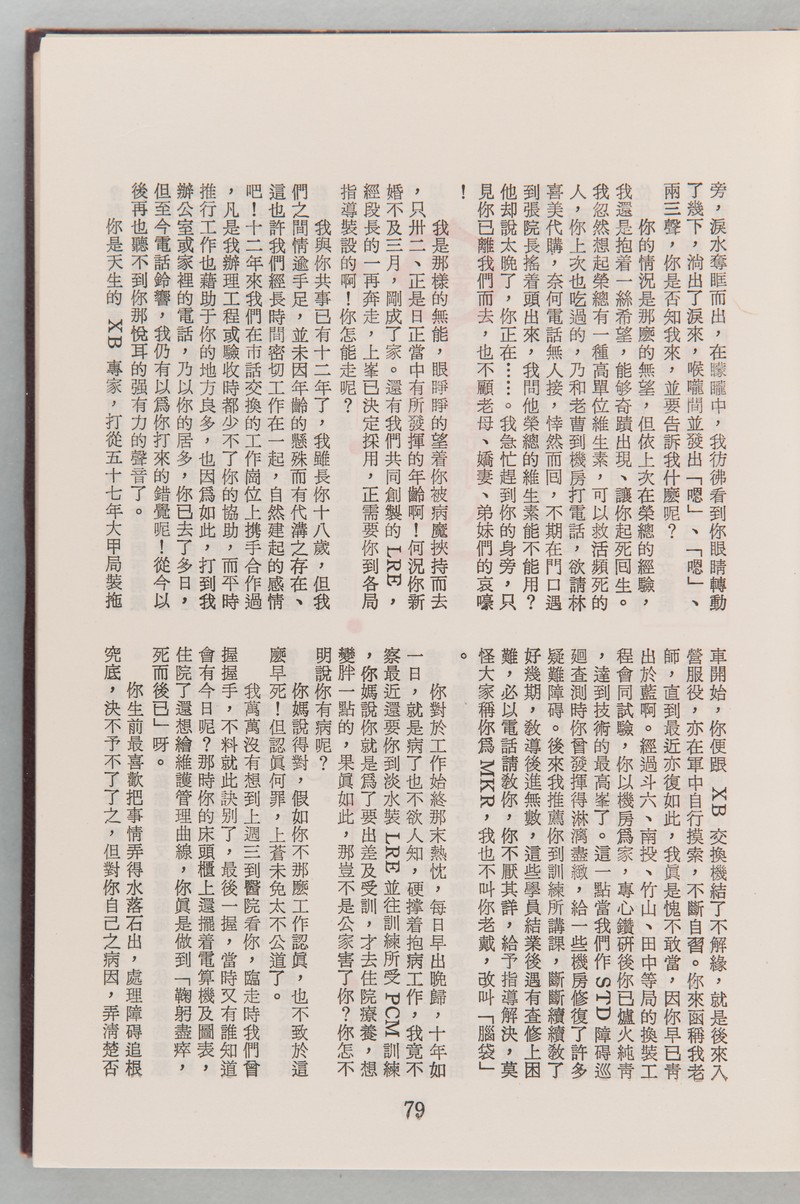 旁，淚水奪眶而出，在矇矓中，我彷彿看到你眼睛轉動
了幾下，淌出了淚來，喉嚨間並發出「嗯」、「嗯」、
兩三聲，你是否知我來，並要告訴我什麼呢？
你的情況是那麼的無望，但依上次在榮總的經驗，
我還是抱着一絲希望，能够奇蹟出現、讓你起死回生。
我忽然想起榮總有一種高單位維生素，可以救活頻死的
人，你上次也吃過的，乃和老曹到機房打電話，欲請林
喜美代購，奈何電話無人接，悻然而回，不期在門口遇
到張院長搖着頭出來，我問他榮總的維生素能不能用？
他却說太晚了，你正在……。我急忙趕到你的身旁，只
見你已離我們而去，也不顧老母、嬌妻、弟妹們的哀嚎
！
我是那樣的無能，眼睜睜的望着你被病魔挾持而去
，只卅二、正是日正當中有所發揮的年齡啊！何況你新
婚不及三月，剛成了家。還有我們共同創製的 LRE，
經段長的一再奔走，上峯已決定採用，正需要你到各局
指導裝設的啊！你怎能走呢？
我與你共事已有十二年了，我雖長你十八歲，但我
們之間情逾手足，並未因年齡的懸殊而有代溝之存在、
這也許我們經長時間密切工作在一起，自然建起的感情
吧！十二年來我們在市話交換的工作崗位上携手合作過
，凡是我辦理工程或驗收時都少不了你的協助，而平時
推行工作也藉助于你的地方良多，也因爲如此，打到我
辦公室或家裡的電話，乃以你的居多，你已去了多日，
但至今電話鈴響，我仍有以爲你打來的錯覺呢！從今以
後再也聽不到你那悅耳的强有力的聲音了。
你是天生的 XB 專家，打從五十七年大甲局裝拖
車開始，你便跟 XB 交換機結了不解緣，就是後來入
營服役，亦在軍中自行摸索，不斷自習。你來函稱我老
師，直到最近亦復如此，我眞是愧不敢當，因你早已靑
出於藍啊。經過斗六、南投、竹山、田中等局的換裝工
程會同試驗，你以機房爲家，專心鑽研後你已爐火純靑
，達到技術的最高峯了。這一點當我們作 STD 障碍巡
廻査測時你曾發揮得淋漓盡緻，給一些機房修復了許多
疑難障碍。後來我推薦你到訓練所講課，斷斷續續敎了
好幾期，敎導後進無數，這些學員結業後遇有査修上困
難，必以電話請敎你，你不厭其詳，給予指導解決，莫
怪大家稱你爲 MKR，我也不叫你老戴，改叫「腦袋」
。
你對於工作始終那末熱忱，每日早出晚歸，十年如
一日，就是病了也不欲人知，硬撑着抱病工作，我竟不
察最近還要你到淡水裝 LRE 並往訓練所受 PCM 訓練
，你媽說你就是爲了要出差及受訓，才去住院療養，想
變胖一點的，果眞如此，那豈不是公家害了你？你怎不
明說你有病呢？
你媽說得對，假如你不那麽工作認眞，也不致於這
麽早死！但認眞何罪，上蒼未免太不公道了。
我萬萬沒有想到上週三到醫院看你，臨走時我們曾
握握手，不料就此訣別了，最後一握，當時又有誰知道
會有今日呢？那時你的床頭櫃上還擺着電算機及圖表，
住院了還想繪維護管理曲線，你眞是做到「鞠躬盡瘁，
死而後已」呀。
你生前最喜歡把事情弄得水落石出，處理障碍追根
究底，決不予不了了之，但對你自己之病因，弄淸楚否
79